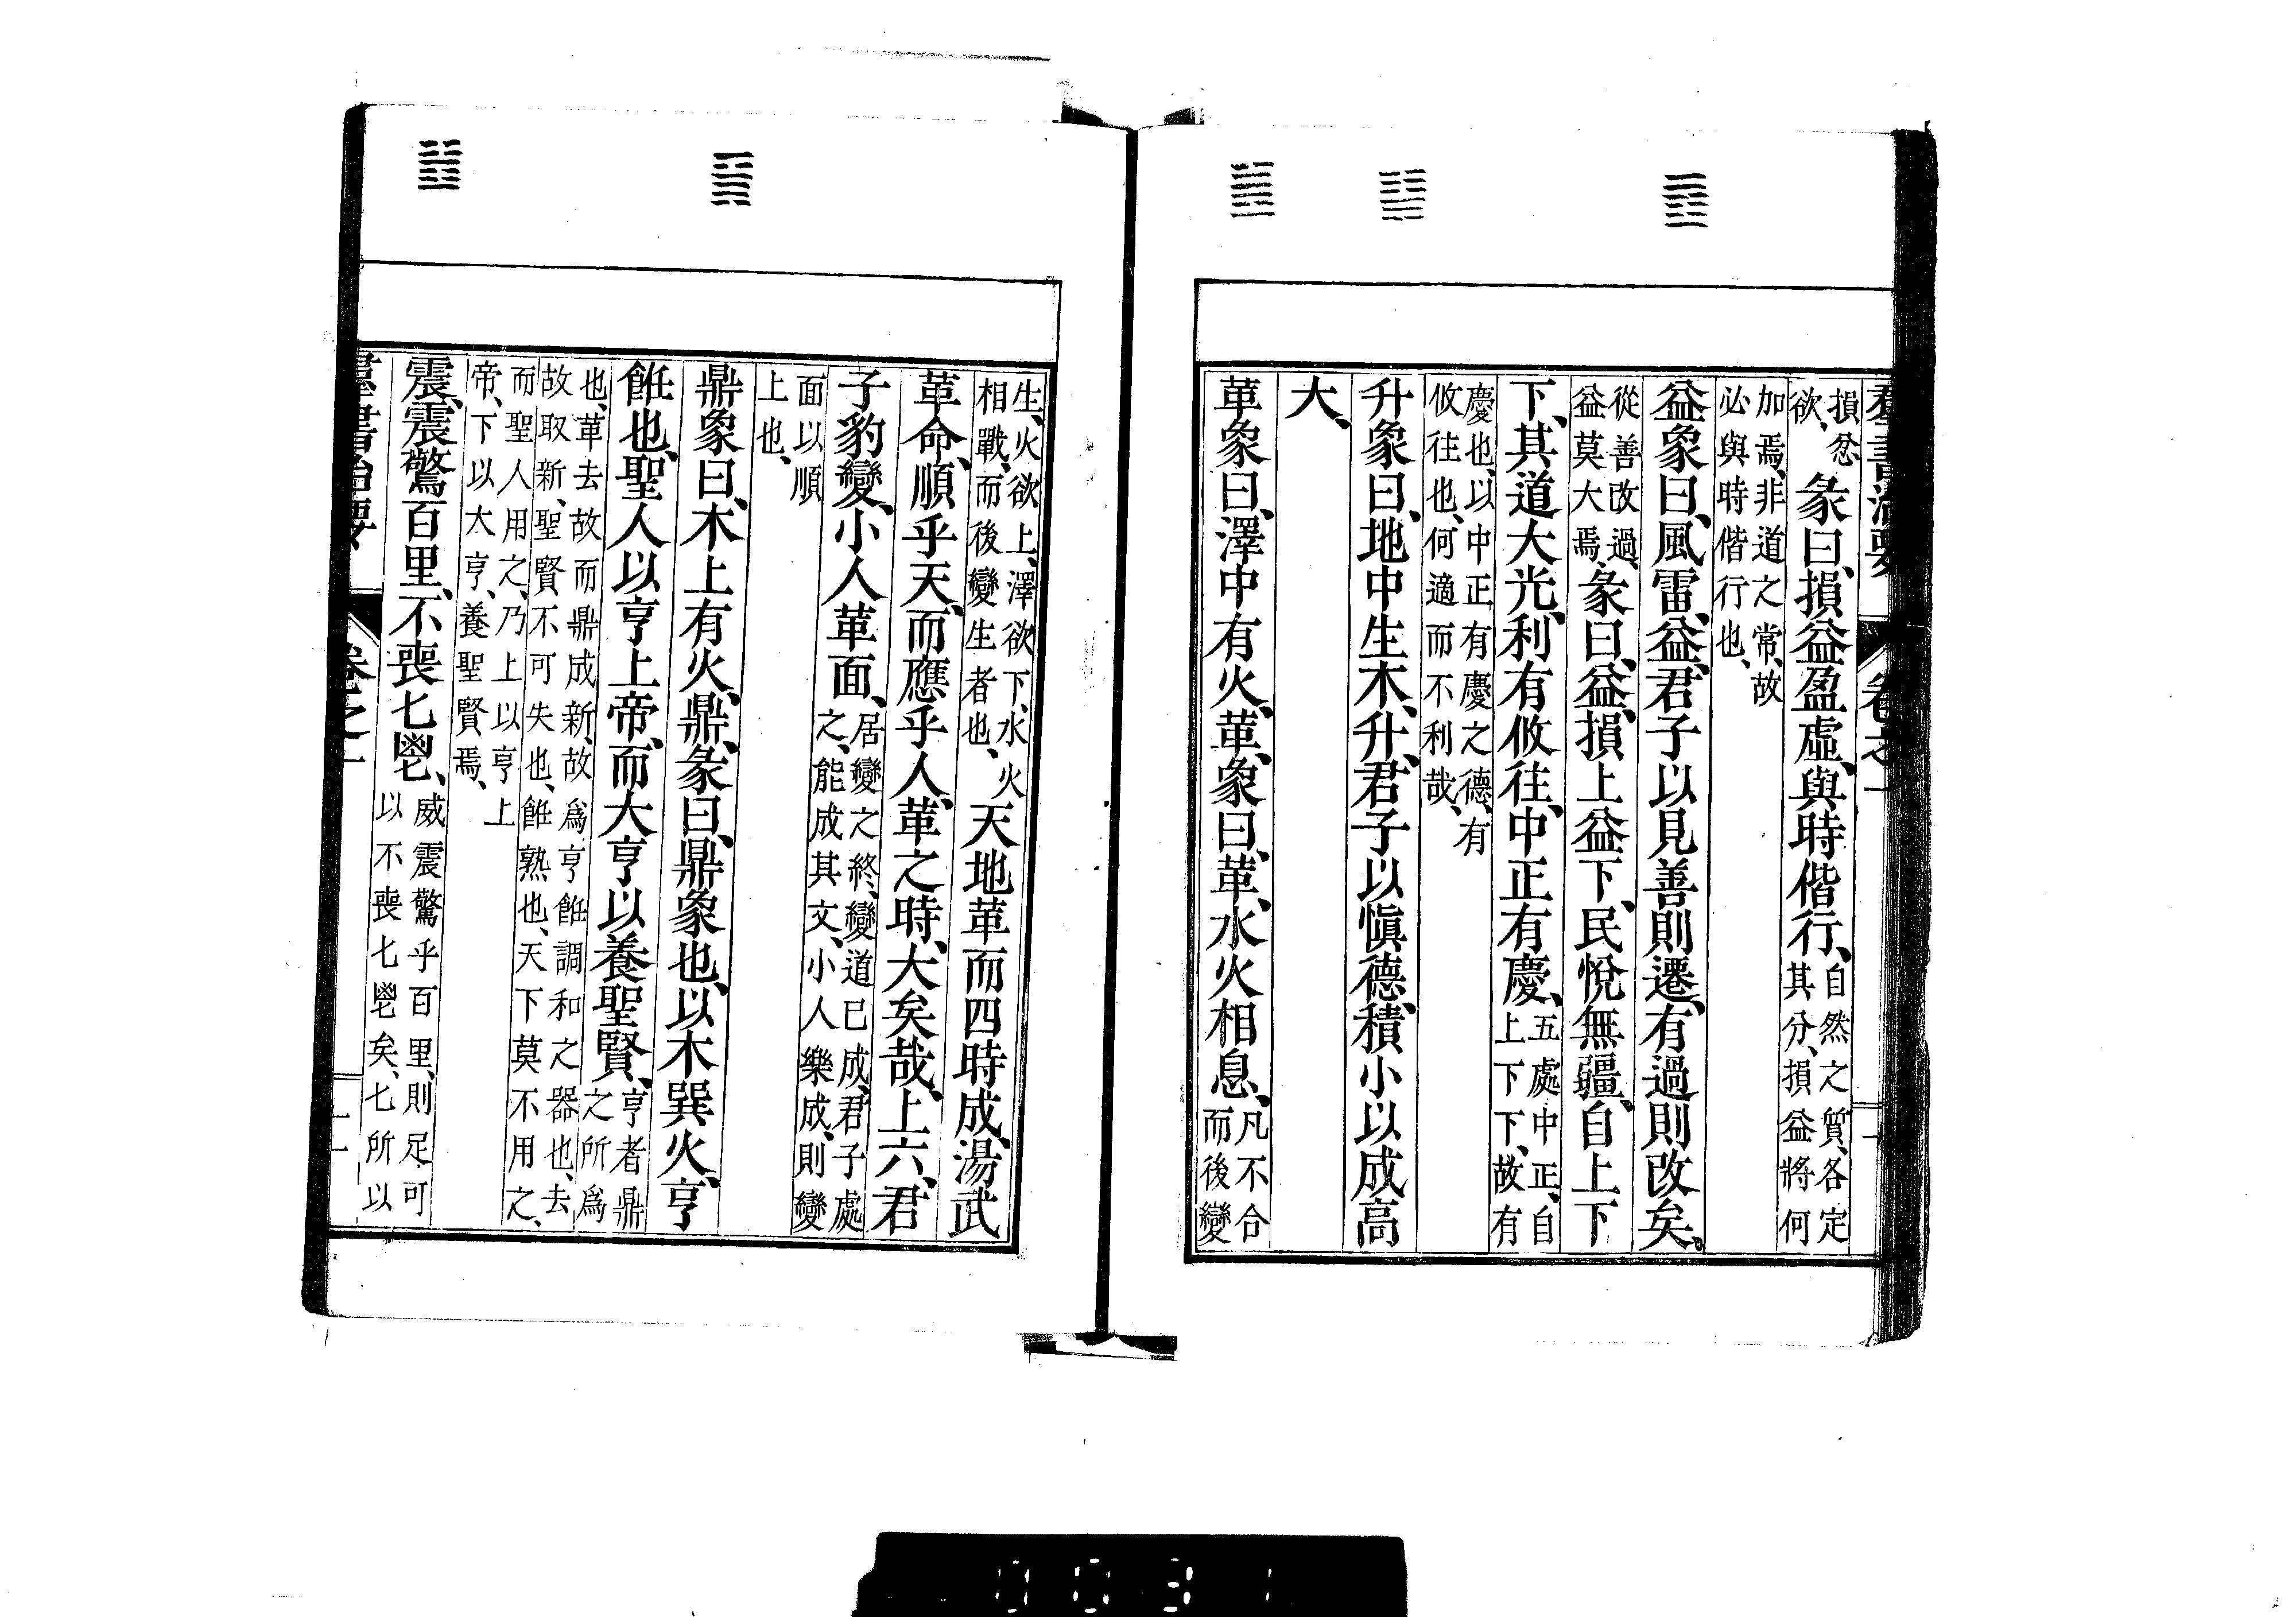 羣書治要 卷之一
損忿欲、彖曰、損益盈虛、與時偕行、自然之質、各定其分、損益將何
加焉、非道之常、故必與時偕行也、
益象曰、風雷益、君子以見善則遷、有過則改矣、
從善改過、益莫大焉、彖曰、益、損上益下、民悅無疆、自上下
下、其道大光、利有攸往、中正有慶、五處中正、自上下下、故有
慶也、以中正有慶之德、有攸往也、何適而不利哉、
升象曰、地中生木、升、君子以慎德、積小以成高
大、
革象曰、澤中有火、革、彖曰、革、水火相息、凡不合而後變
生、火欲上、澤欲下、水火相戰、而後變生者也、天地革而四時成、湯武
革命、順乎天、而應乎人、革之時、大矣哉、上六、君
子豹變、小人革面、居變之終、變道已成、君子處之、能成其文、小人樂成、則變
面以順上也、
鼎象曰、木上有火、鼎、彖曰、鼎象也、以木巽火、亨
飪也、聖人以亨上帝、而大亨以養聖賢、亨者鼎之所爲
也、革去故而鼎成新、故爲亨飪調和之器也、去故取新、聖賢不可失也、飪熟也、天下莫不用之、
而聖人用之、乃上以亨上帝、下以大亨、養聖賢焉、
震、震驚百里、不喪匕鬯、威震驚乎百里、則足可以不喪匕鬯矣、匕所以
羣書治要 卷之一 十一
0031